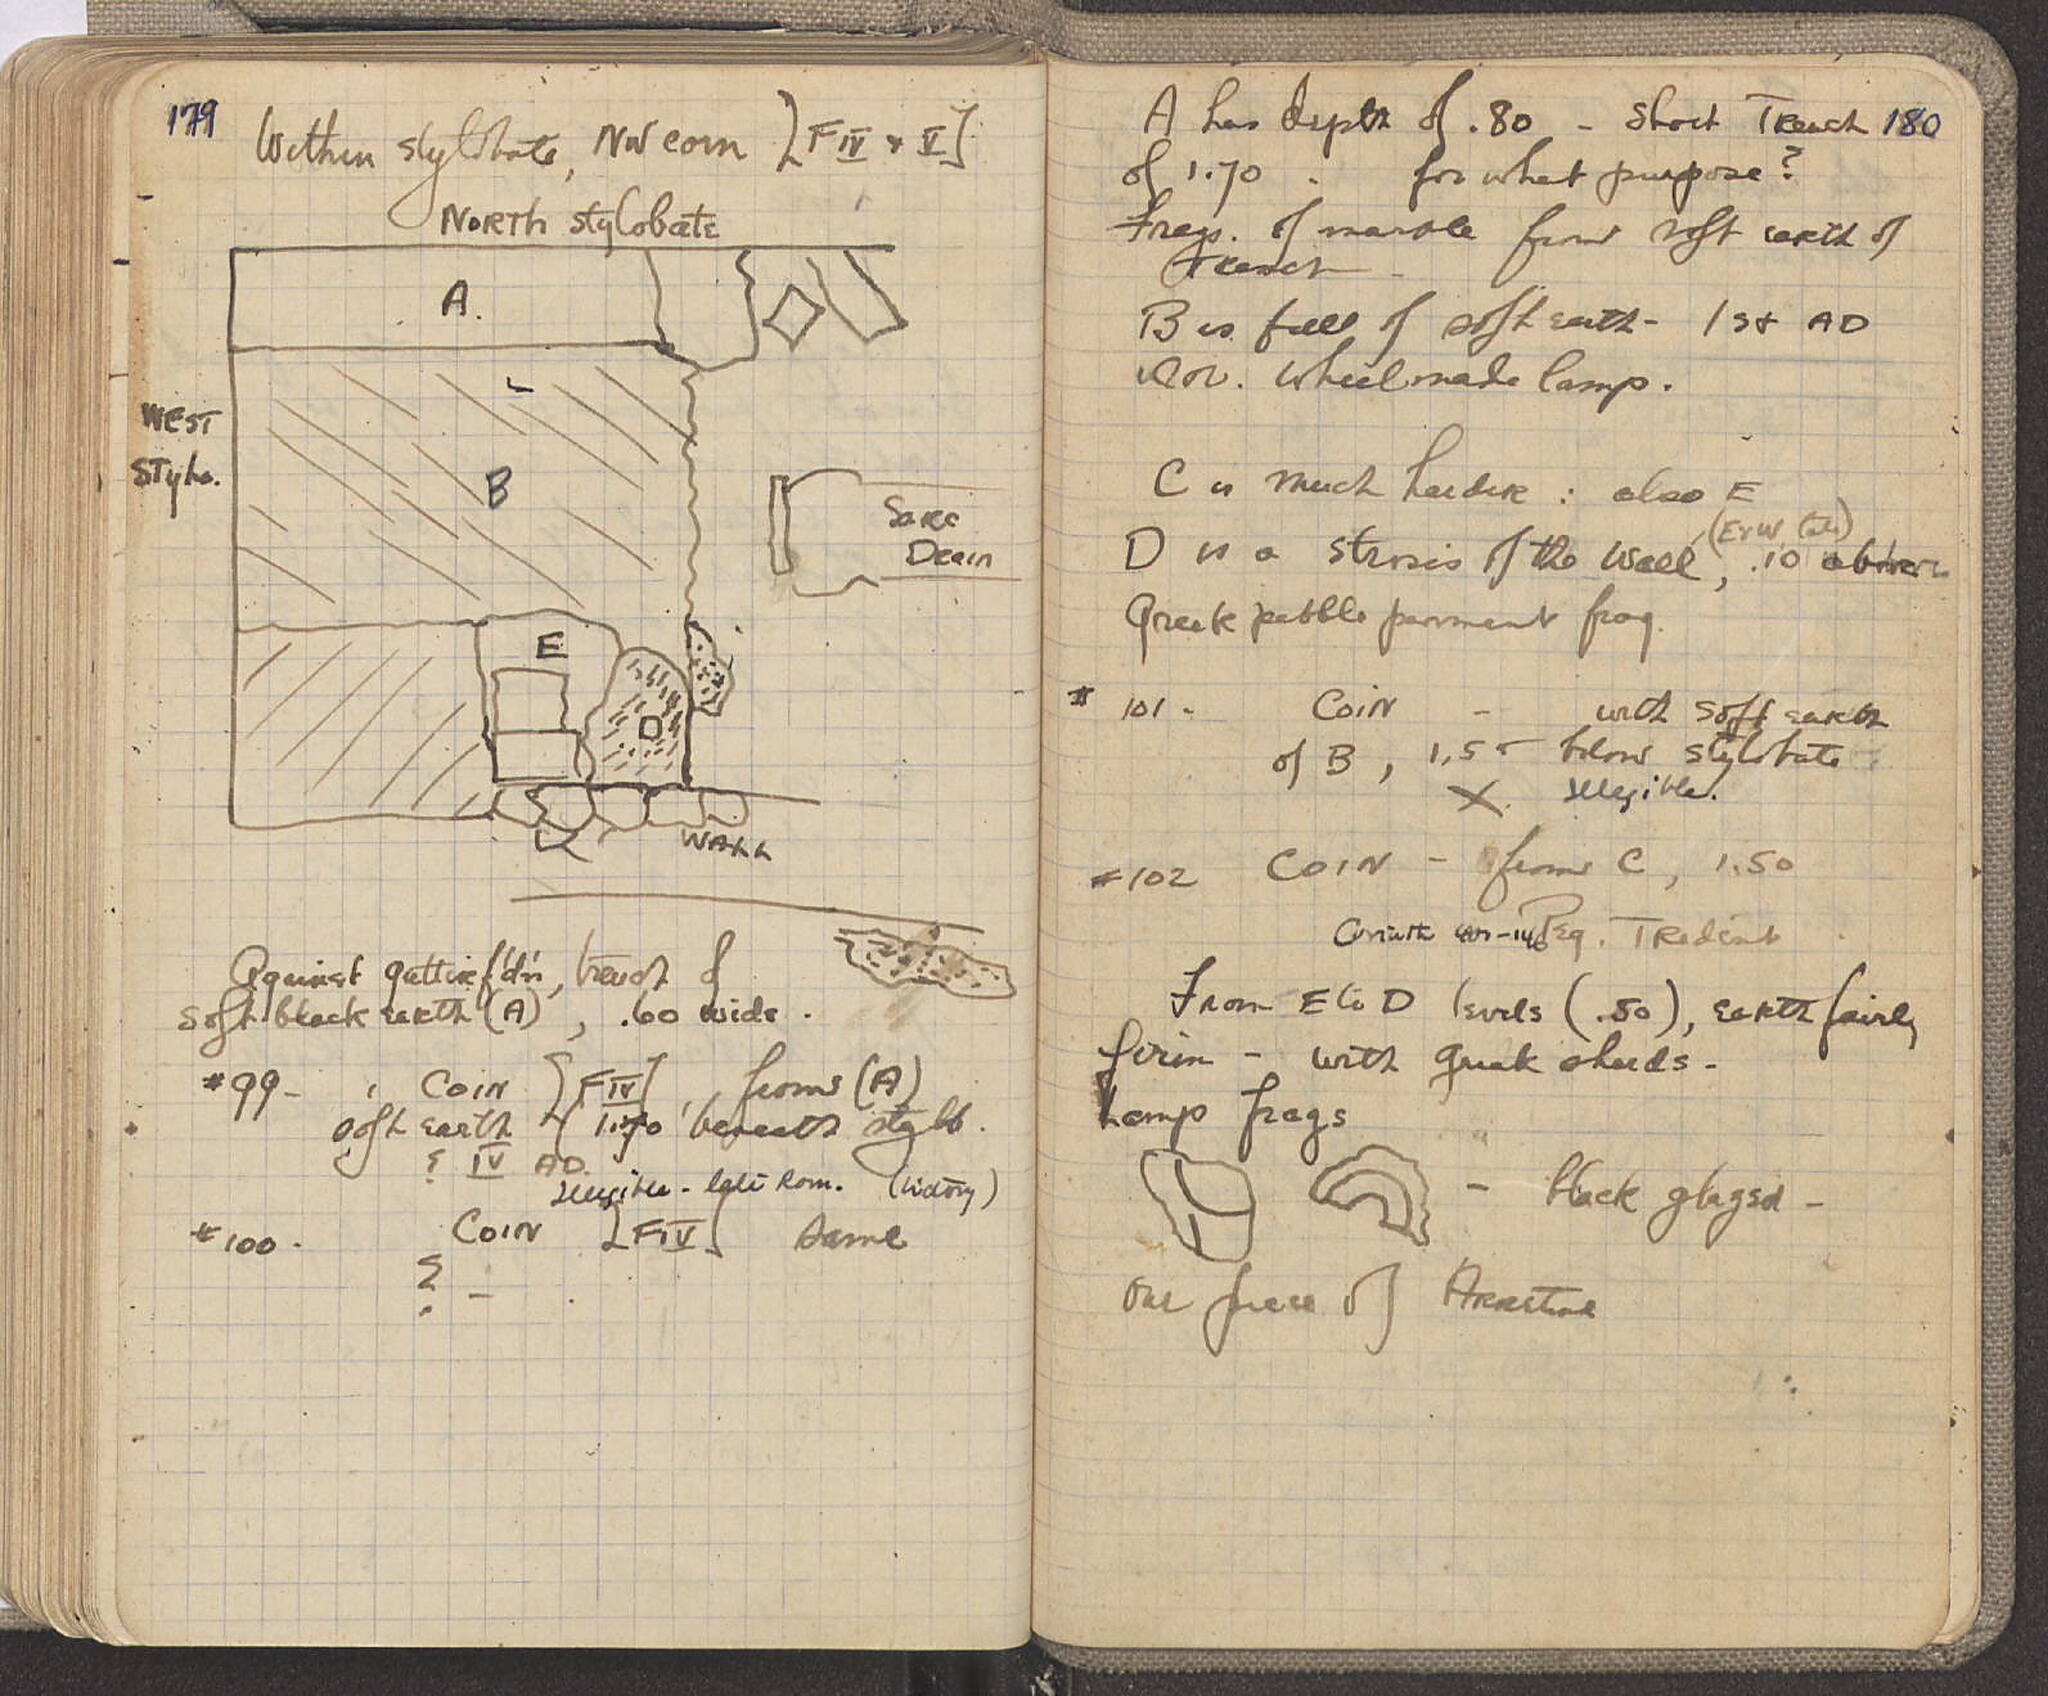 179
Within stylobate, NW corn [F IV & V]
North stylobate
A.
West
Stylo.
B
Sarc
Drain
E
D
C
WALL
Against gutter f'd'n, trench of
soft black earth (A), .60 wide.
#99- Coin [F IV] from (A)
soft earth 1.70 beneath stylb.
? IV AD.
Illegible - late Rom. (Victory)
#100. Coin [F IV] same
? -
180
A has depth of .80 - Short Trench
of 1.70. for what purpose?
Frags. of marble from soft earth of
trench -
B is full of soft earth - 1st AD
wheelmade lamp.
C is much harder: also E
(E & W)
D is a strosis of the Wall, .10 above
Greek pebble pavment frag.
# 101 - Coin - with soft earth
of B, 1.55 below stylobate
X. Illegible.
#102 Coin - from C, 1.50
Corinth Peg. Trident
From E to D levels (.50), earth fairly
firm - with Greek sherds -
Lamp frags
- black glazed -
One piece of Arretine